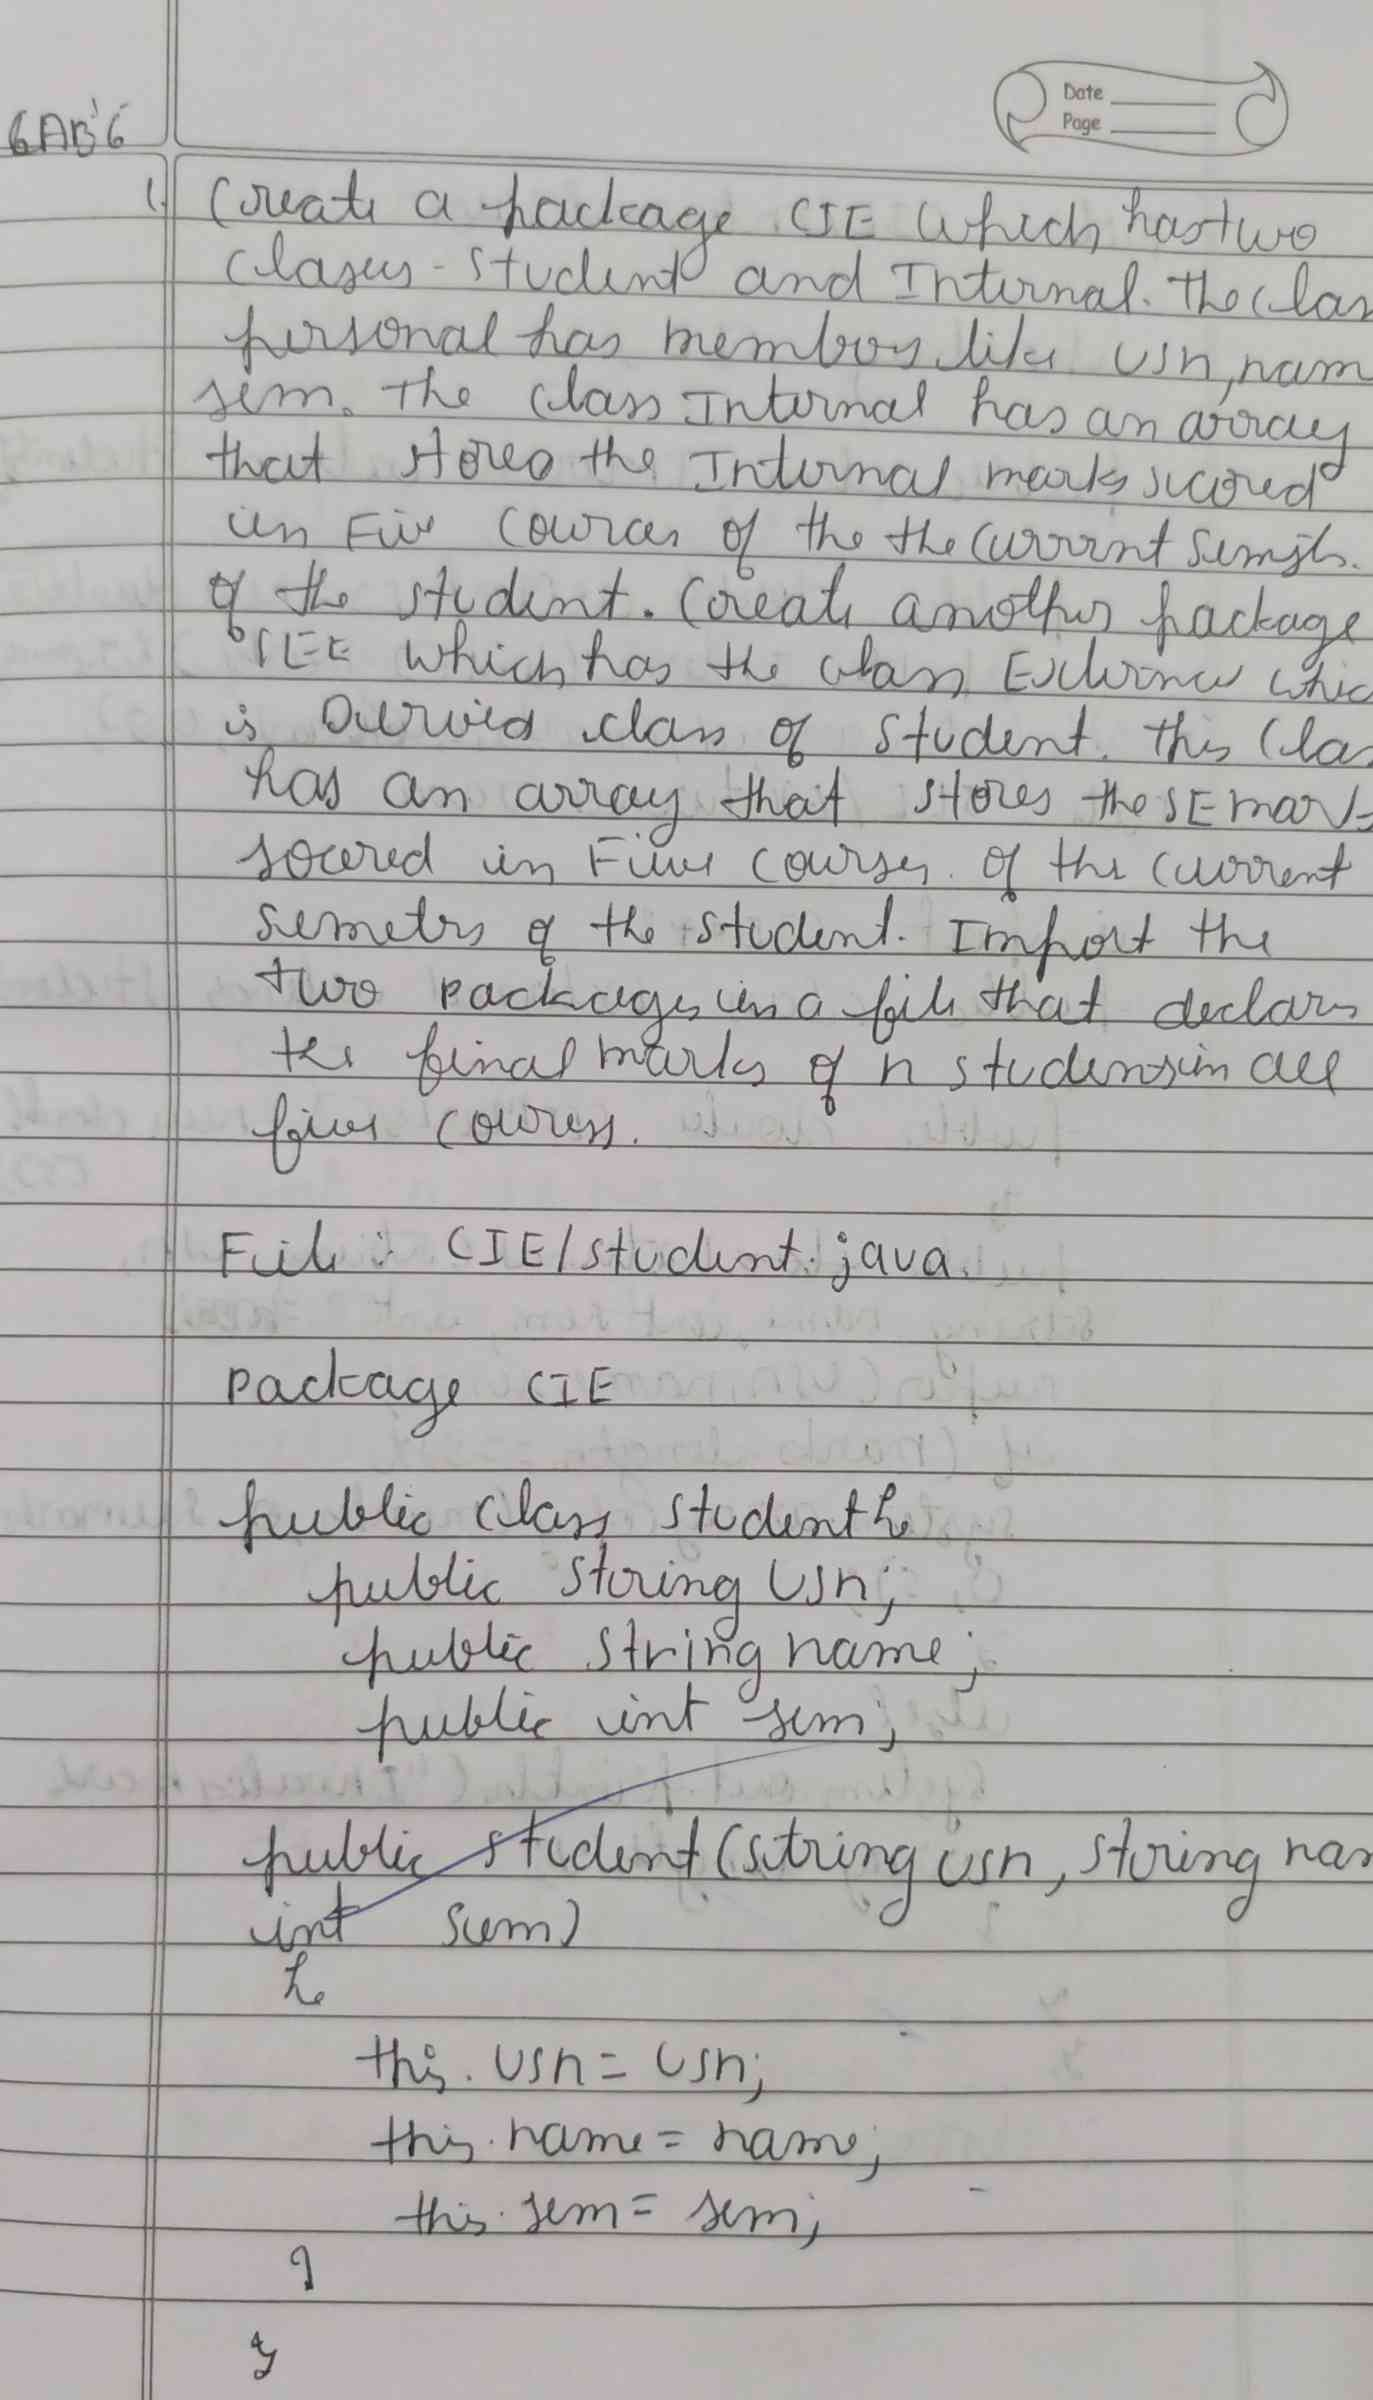 Date
Page
LAB 6
1. Create a package CIE which has two
classes - student and Internal. The clas
personal has members like usn, nam
sem. The class Internal has an array
that stores the Internal marks scored
in Five courses of the the current
of the student. Create another package
SEE which has the class External whic
is Derived class of student. This clas
has an array that stores the SE mark
scored in Five courses of the current
semetrs of the student. Import the
two packages in a file that declars
the final marks of n students in all
five courses.
File : CIE/student.java.
package CIE
public class student {
public string usn;
public string name;
public int sem;
public student (string usn, string nam
int sem)
{
this. usn = usn;
this. name = name;
this. sem = sem;
}
}